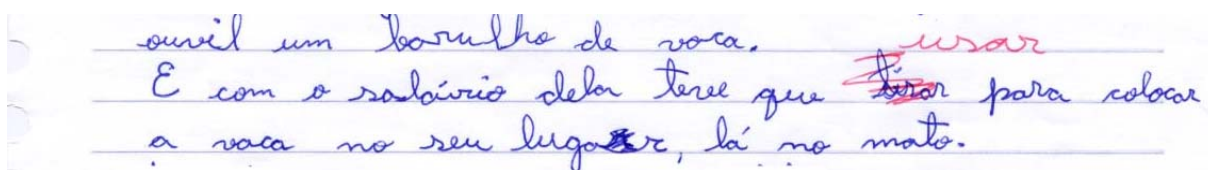 ouvil um barulho de vaca. usar
E com o saláirio dela teve que tirar para colocar
a vaca no seu lugar, lá no mato.